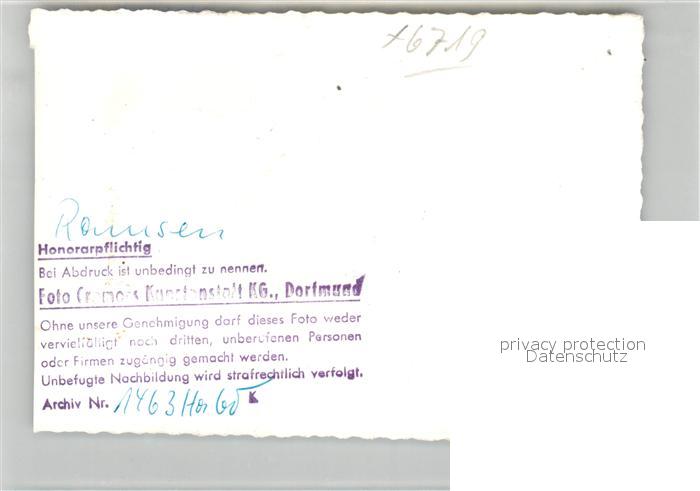 +6719
Ramsen
Honorarpflichtig
Bei Abdruck ist unbedingt zu nennen.
Foto Cramers Kunstanstalt KG., Dortmund
Ohne unsere Genehmigung darf dieses Foto weder
vervielfältigt noch dritten, unberufenen Personen
oder Firmen zugängig gemacht werden.
Unbefugte Nachbildung wird strafrechtlich verfolgt.
Archiv Nr. 1463 K
privacy protection
Datenschutz